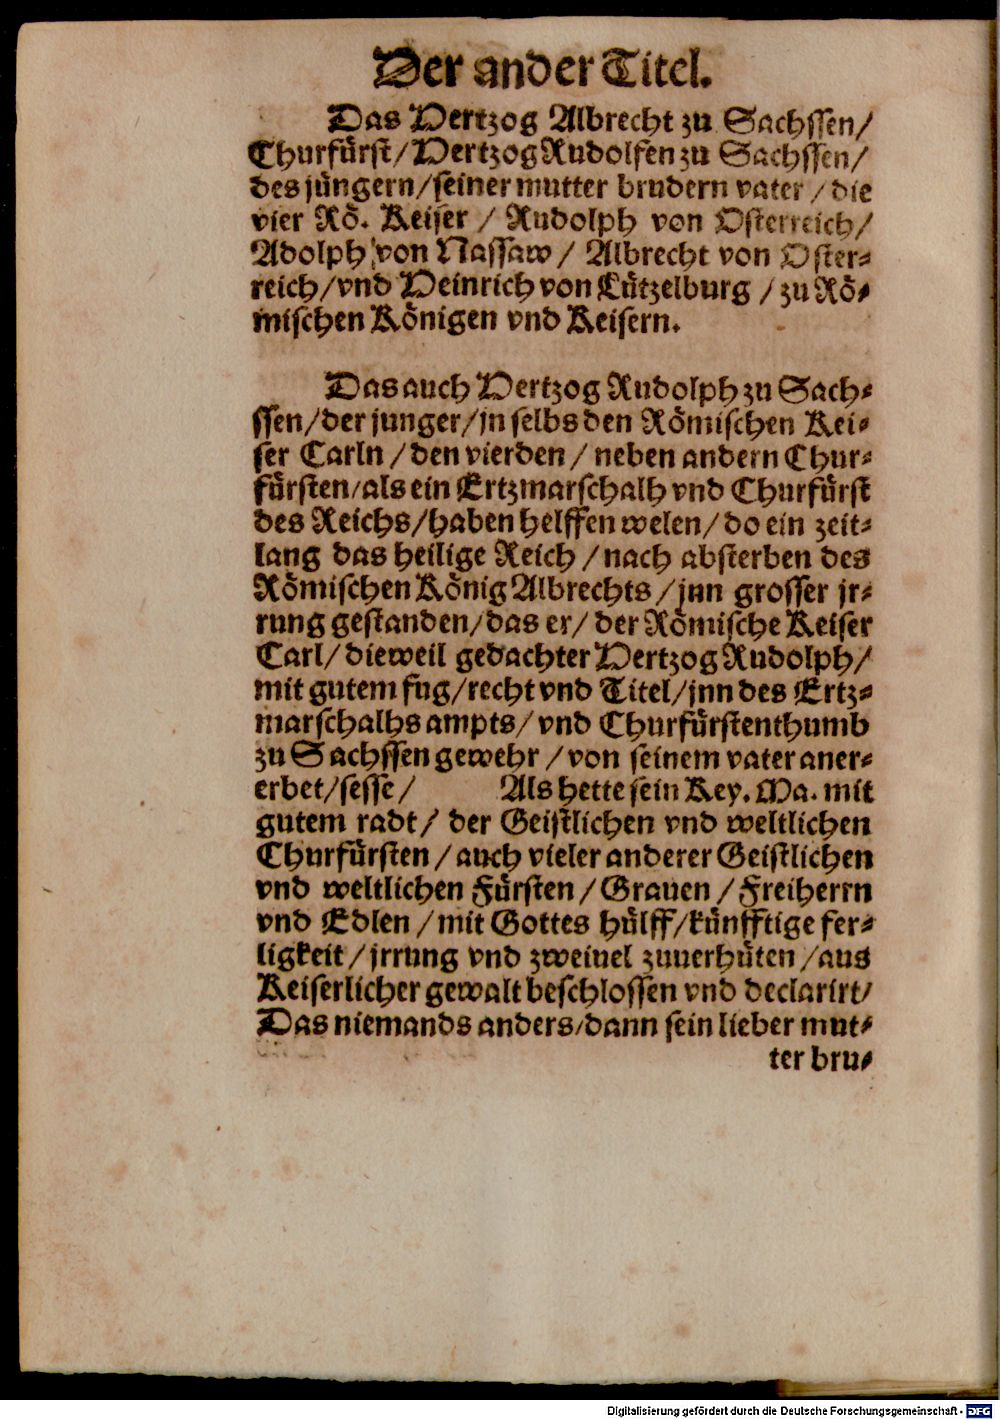 Der ander Titel.
Das Hertzog Albrecht zu Sachssen/
Churfürst/Hertzog Rudolfen zu Sachssen/
des jüngern/seiner mutter brudern vater/die
vier Rö. Keiser/ Rudolph von Osterreich/
Adolph von Nassaw/ Albrecht von Oster-
reich/vnd Heinrich von Lützelburg/zu Rö-
mischen Königen vnd Keisern.
Das auch Hertzog Rudolph zu Sach-
ssen/der junger/jn selbs den Römischen Kei-
ser Carln/den vierden/neben andern Chur-
fürsten/als ein Ertzmarschalh vnd Churfürst
des Reichs/haben helffen welen/do ein zeit-
lang das heilige Reich/nach absterben des
Römischen König Albrechts/jnn grosser jr-
rung gestanden/das er/der Römische Keiser
Carl/dieweil gedachter Hertzog Rudolph/
mit gutem fug/recht vnd Titel/jnn des Ertz-
marschalhs ampts/vnd Churfürstenthumb
zu Sachssen gewehr/von seinem vater aner-
erbet/sesse/ Als hette sein Key. Ma. mit
gutem radt/der Geistlichen vnd weltlichen
Churfürsten/auch vieler anderer Geistlichen
vnd weltlichen Fürsten/Grauen/Freiherrn
vnd Edlen/mit Gottes hülff/künfftige fer-
ligkeit/jrrung vnd zweiuel zuuerhüten/aus
Keiserlicher gewalt beschlossen vnd declarirt/
Das niemands anders/dann sein lieber mut-
ter bru-
Digitalisierung gefördert durch die Deutsche Forschungsgemeinschaft - DFG